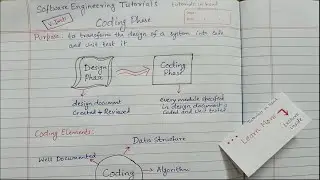 Software Engineering Tutorials
Coding Phase
Tutorials in hand
Purpose: to transform the design of a system into
and unit test it.
Design Phase
Coding Phase
design document Created + Reviewed
every module specified in design document is Coded and unit tested
Learn More
Coding Elements:
Data Structure
Well Documented
Algorithm
Coding